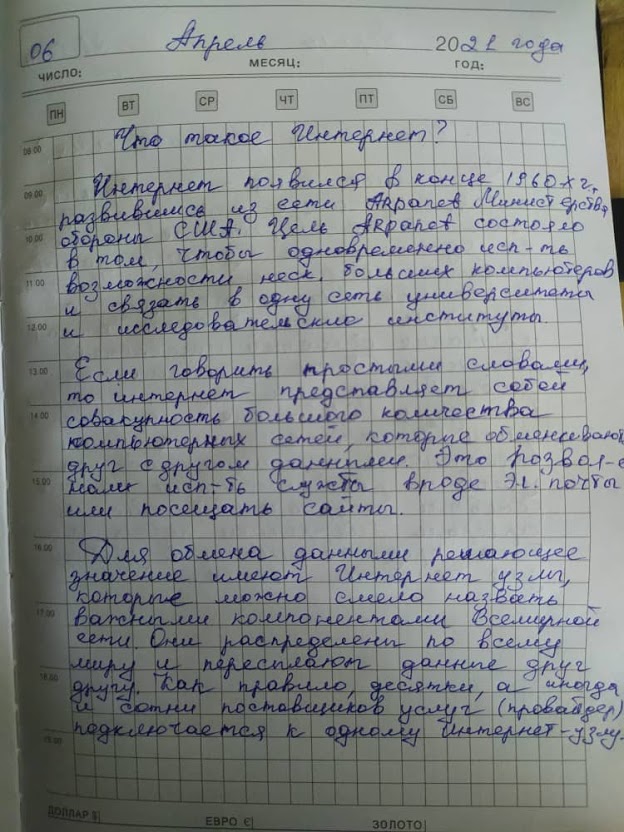 06 Апрель 2021 года
ЧИСЛО: МЕСЯЦ: ГОД:
ПН ВТ СР ЧТ ПТ СБ ВС
Что такое Интернет?
08.00
Интернет появился в конце 1960х г.,
09.00
развившись из сети ARpanet Министерства
обороны США. Цель ARpanet состояло
10.00
в том, чтобы одновременно исп-ть
возможности неск. больших компьютеров
11.00
и связать в одну сеть университеты
12.00
и исследовательские институты.
13.00
Если говорить простыми словами,
то интернет представляет собой
14.00
совакупность большого количества
компьютерных сетей, которые обмениваются
друг с другом данными. Это позвол-е
15.00
нам исп-ть службы вроде эл. почты
или посещать сайты.
16.00
Для обмена данными решающее
значение имеют Интернет узлы,
которые можно смело назвать
17.00
важными компонентами Всемирной
сети. Они распределены по всему
миру и пересылают данные друг
18.00
другу. Как правило, десятки, а иногда
и сотни поставщиков услуг (провайдер)
подключается к одному Интернет-узлу.
19.00
ДОЛЛАР $ ЕВРО € ЗОЛОТО